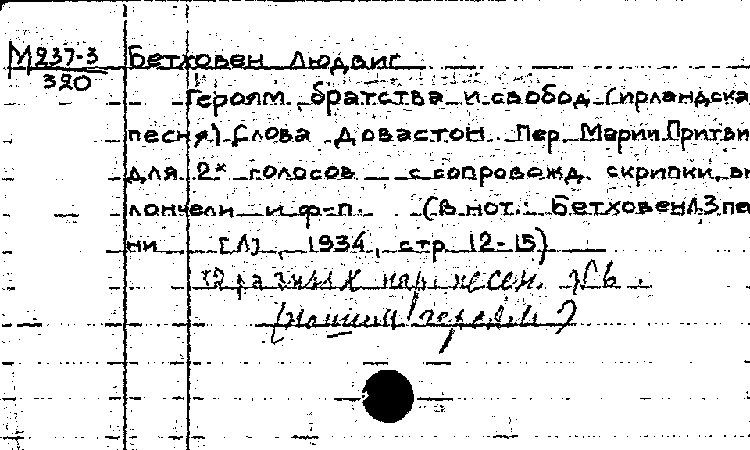 М237-3
320
Бетховен Людвиг
Героям братства и свобод (ирландска
песня) Слова Довастон. Пер. Марии Притви
для 2х голосов с сопровожд. скрипки, ви
лончели и ф-п. (В нот.: Бетховен Л. 3 пе
ни [Л], 1934, стр. 12-15)
12 разных нар. песен.
(нашим героям)